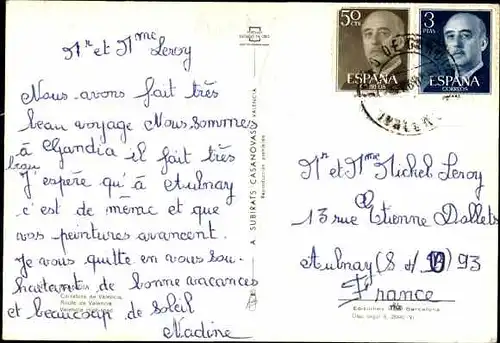 Mr et Mme Leroy
Nous avons fait très
beau voyage Nous sommes
à Gandia il fait très
beau
J'espère qu'à Aulnay
c'est de même et que
vos peintures avancent.
Je vous quitte en vous sou-
haitant de bonne vacances
et beaucoup de soleil
Nadine
Carretera de Valencia
Route de Valence
A. SUBIRATS CASANOVAS VALENCIA
50
CTS
ESPAÑA
CORREOS
3
PTAS
ESPAÑA
CORREOS
Mr et Mme Michel Leroy
13 rue Etienne Dollets
Aulnay (S s/ B) 93
France
Barcelona